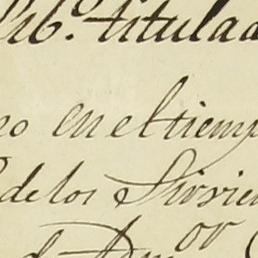 Lib.º titulad
no en el tiemp
de los Sirvien